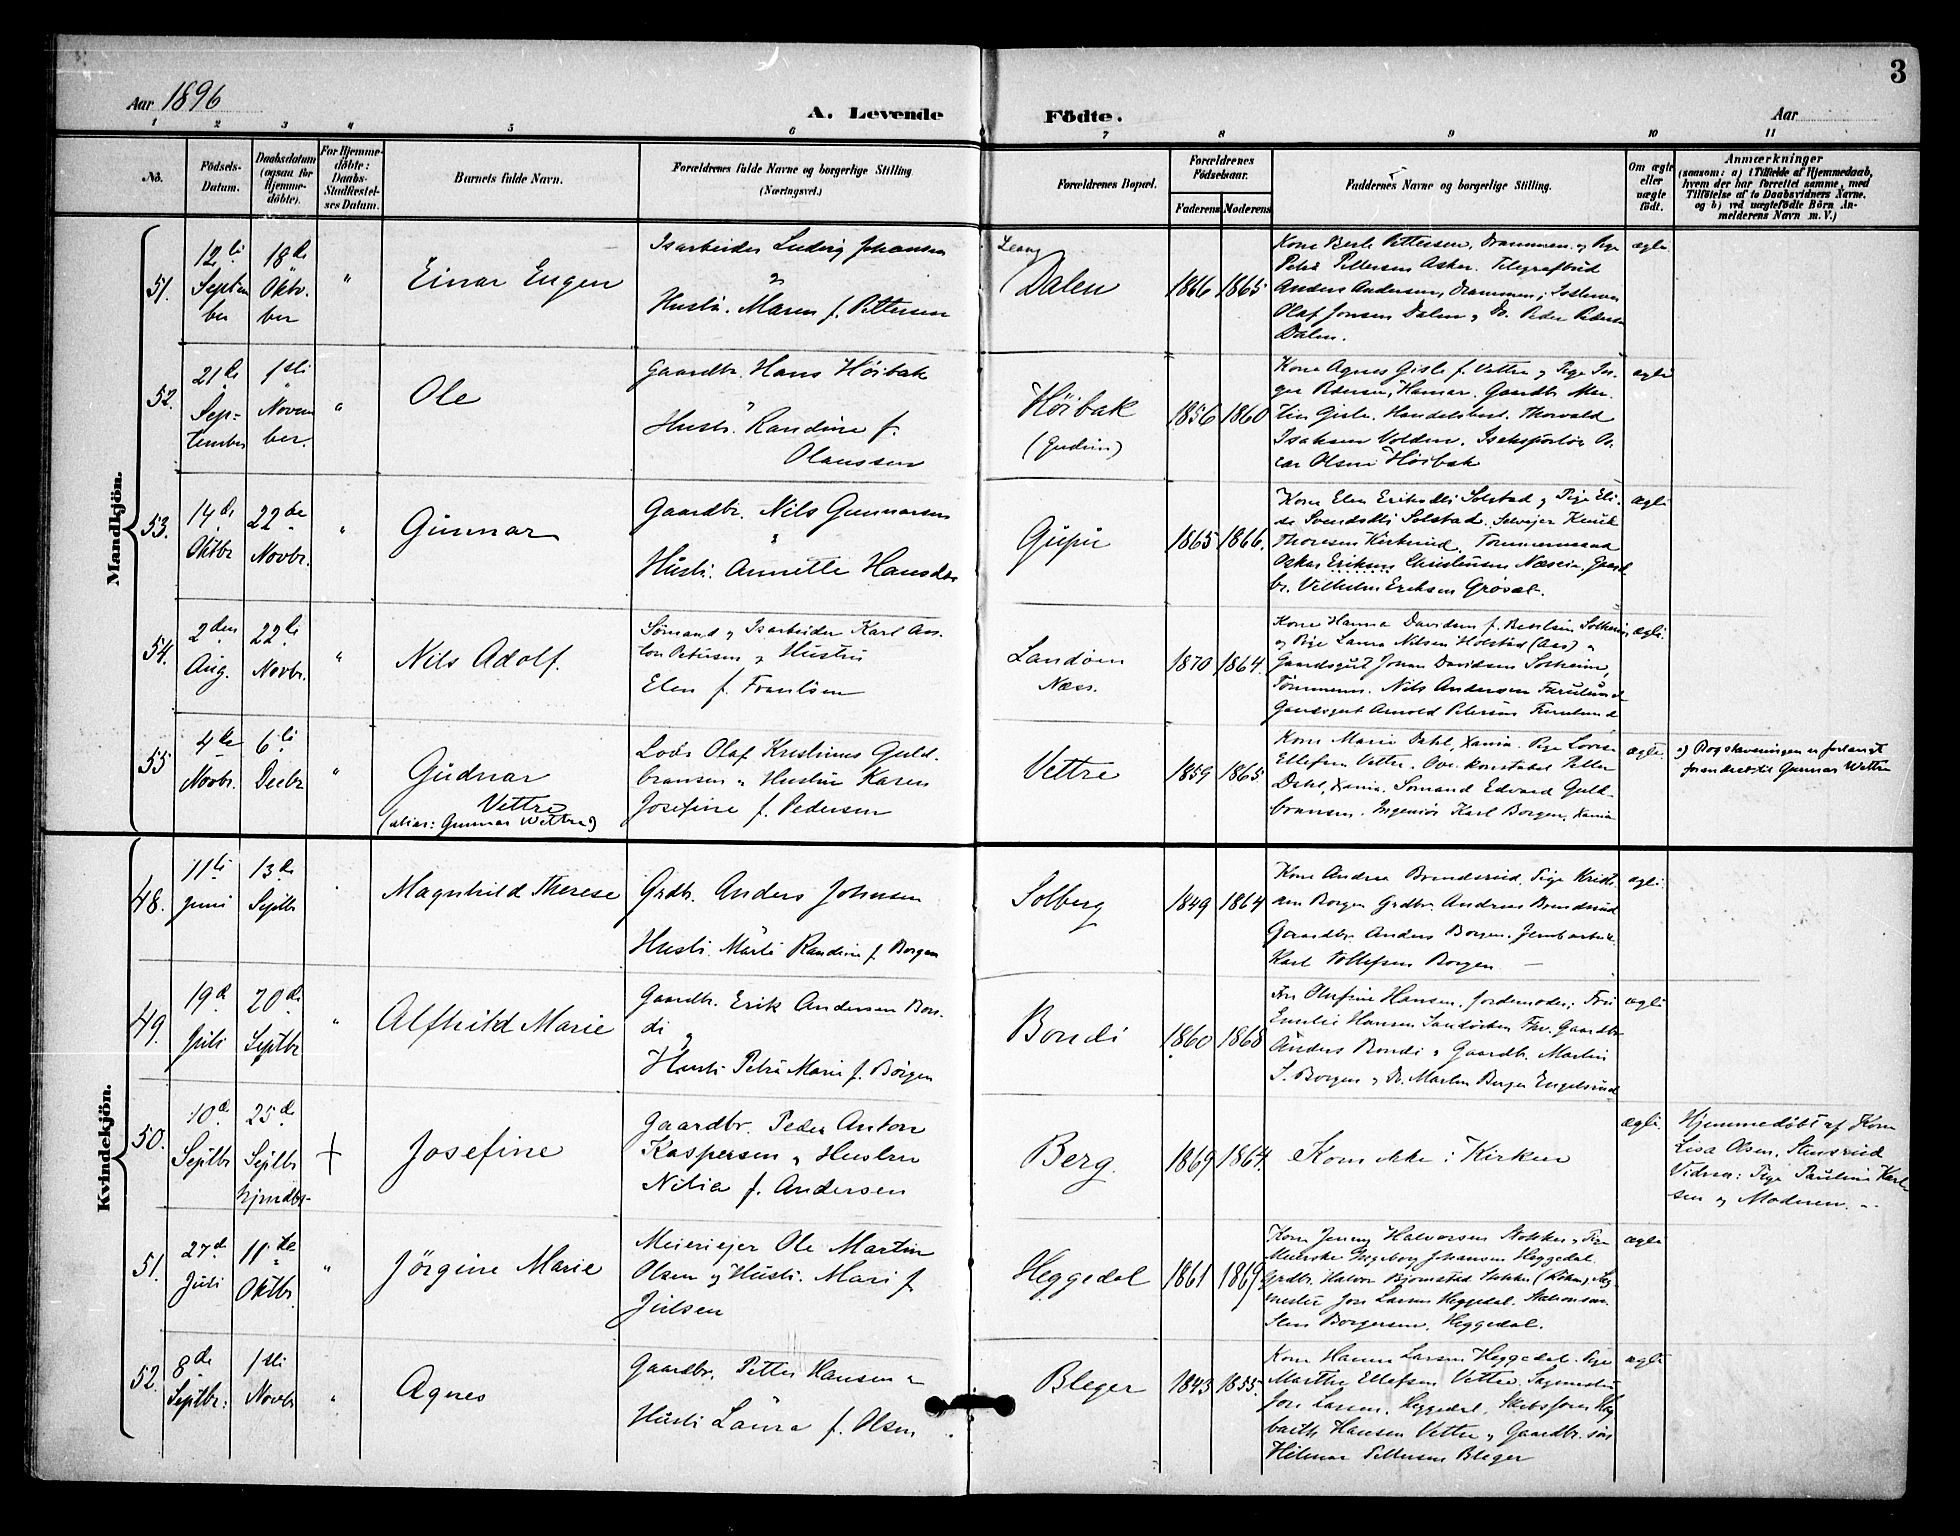 3
Aar 1896
A. Levende
Födte.
Aar
1 2 3 4 5 6 7 8 9 10 11
No.
Födsels-
Datum.
Daabsdatum
(ogsaa for
Hjemme-
döbte).
For Hjemme-
döbte:
Daabs-
Stadfæstel-
ses Datum.
Barnets fulde Navn.
Forældrenes fulde Navne og borgerlige Stilling
(Næringsvei.)
Forældrenes Bopæl.
Forældrenes
Födselsaar.
Faderens Moderens
Faddernes Navne og borgerlige Stilling.
Om ægte
eller
uægte
födt.
Anmærkninger
(saasom: a) i Tilfælde af Hjemmedaab,
hvem der har forrettet samme, med
Tilföielse af to Daabsvidners Navne.
og b) ved uægtefödte Börn An-
melderens Navn m. V.)
Mandkjön.
51.
12
Septem
ber
18de
Oktbr.
ber
"
Einar Eugen
Isarbeider Ludvig Johansen
Hustr. Maren f. Pettersen
Dalen
1866 1865
Kone Berte Pettersen, Drammen. Pige
Petra Pettersen Asker. Telegrafbud
Anders Andersen, Drammen;
Olaf Jonsen Dalen, Do. Peder
Dalen.
ægte
52.
21de
Sep-
tember
1ste
Novem
ber.
"
Ole
Gaardbr. Hans Höibak
Hustr. Randine f.
Olaussen
Höibak
(Gudrun)
1856 1860
Kone Agnes Gisle f. Vettre Pige
Pedersen, Hamar. Gaardb. Mar.
tin Gisle. Handelsbest. Thorvald
Isaksen Volden.
car Olsen Höibak
ægte
53.
14de
Oktbr
22de
Novbr.
"
Gunnar
Gaardbr. Nils Gunnarsen
Hustr. Annette Hansdtr
Gupu
1865 1866.
Kone Elen Eriksdtr Solstad Pige Eli-
se Svendsdtr Solstad. Selveier
Thoresen Tømmermand
Oskar Eriksen Christensen Næsein. Gaard
br. Vilhelm Eriksen
ægte
54.
2den
Aug.
22
Novbr.
"
Nils Adolf.
Sömand Isarbeider Karl
ton Petersen Hustru
Elen f.
Landöen
Næs.
1870 1864.
Kone Hanna Davidsen f. Solheim
Pige Laura Nilsen Holstad (Aas)
Gaardsgut Johan Davidsen Solheim,
Tömmerm. Nils Andersen Furulund
Gaardsgut Arnold Petersen Furulund
ægte.
55
4de
Novbr.
6
Decbr
"
Gudnar
Vettre
(alias: Gunnar Wettre)
Lods Olaf Kristinus Guld-
bransen Hustru Karen
Josefine f. Pedersen
Vettre
1859 1865
Kone Marie Dahl, Xania. Pige Lovise
Ellefsen Vettre. Ov. konstabel Petter
Dahl, Xania. Sömand Edvard Guld-
bransen. Ingeniör Karl Borgen, Xania
ægte.
Bogstaveringen er forlangt
forandret til Gunnar Wettre
Kvindekjön.
48.
11
Juni
13de
Septbr
Magnhild Therese
Grdbr. Anders Johnsen
Hustr. Randine f. Borgen
Solberg
1849 1864
Kone Andrea Brendsrud. Pige
Borgen Grdbr. Andreas Brendsrud
Gaardbr. Anders Borgen.
Karl Tollefsen Borgen —
ægte.
49.
19de
Juli
20de
Septbr
"
Alfhild Marie
Gaardb. Erik Andersen Bon-
di
Hustr. Marie f. Borgen
Bondi
1860 1868
Fru Olufine Hansen, Jordemoder; Fru
Emilie Hansen Gaardbr
Anders Bondi, Gaardb. Martin
S. Borgen, Do. Martin Berger Engelsrud
ægte
50.
10de
Septbr
25de
Septbr
hjmdbt-
+
Josefine
Gaardbr. Peder Anton
Kaspersen Hustru
Nilia f. Andersen
Berg.
1869 1864.
Kom ikke i Kirken
ægte.
Hjemmedöbt af Kone
Lisa Olsen, Stensrud
Vidner: Pige Pauline Karl
sen og Moderen. -
51.
27de
Juli
11te
Oktbr.
"
Jörgine Marie
Meieriejer Ole Martin
Olsen og Hustr. Mari f.
Julsen
Heggedal
1861 1869
Kone Jenny Halvorsen
Ingeborg Johansen Heggedal.
Grdbr. Halvor Bjornstad
mester Jon Larsen Heggedal.
Borgersen, Heggedal.
ægte
52.
8de
Septbr.
1ste
Novbr
"
Agnes
Gaardbr. Petter Hansen
Hustr Laura f. Olsen
Bleger
1843 1855.
Kone Hanna Larsen Heggedal. Pige
Marthe Ellefsen Vettre. Sagmester
Jon Larsen, Heggedal.
Hansen Vettre, Gaardbr. sön
Hilmar Pettersen Bleger
ægte